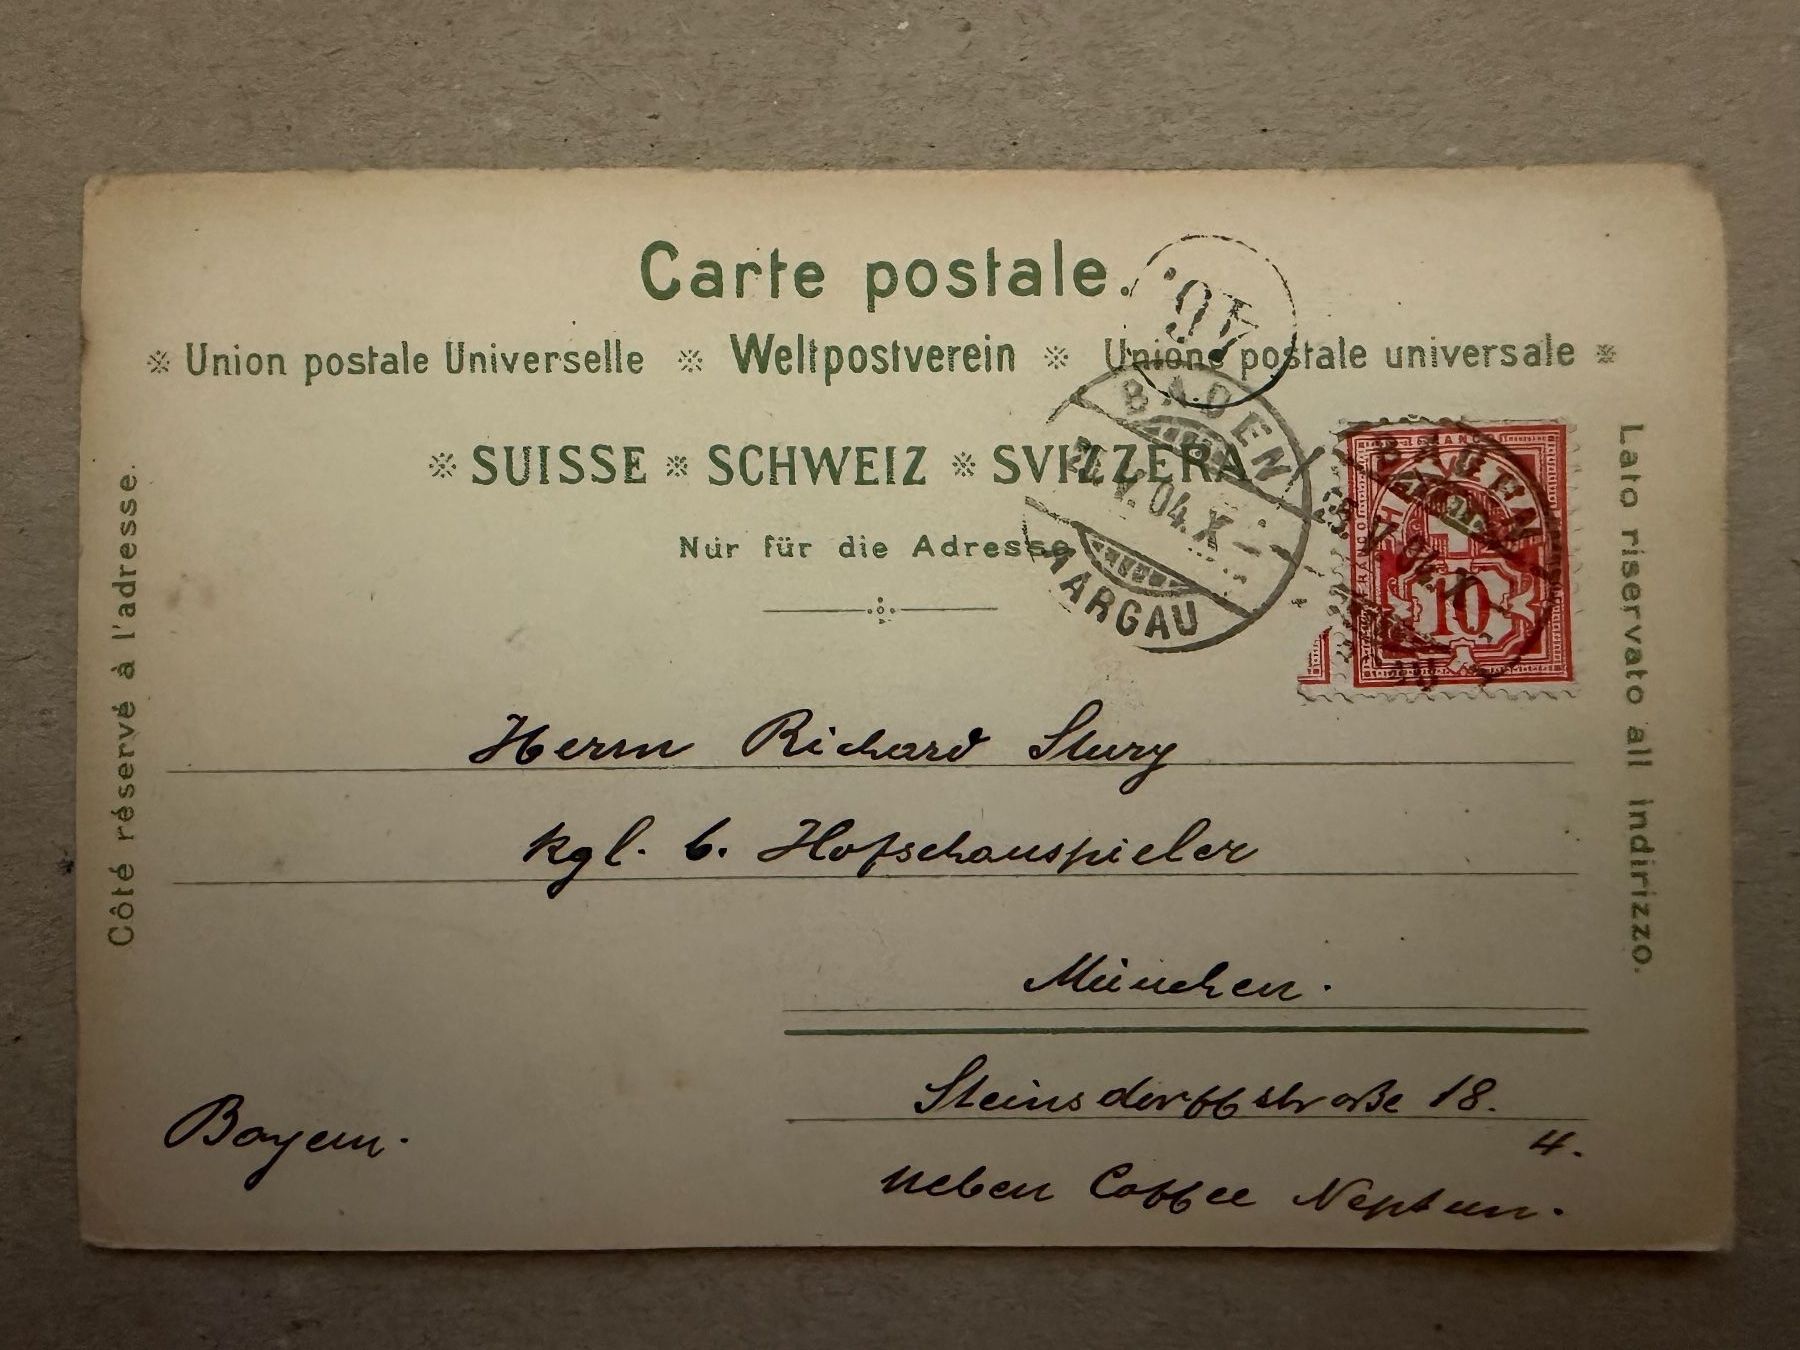 Carte postale.
46.
※ Union postale Universelle ※ Weltpostverein ※ Unione postale universale ※
※ SUISSE ※ SCHWEIZ ※ SVIZZERA
Nur für die Adresse
BADEN
V.04.X
AARGAU
FRANCO
BADEN
04.X
10
Côté réservé à l'adresse.
Lato riservato all indirizzo.
Herrn Richard Stury
kgl. b. Hofschauspieler
München.
Steinsdorffstraße 18.
4.
neben Coffee Neptun.
Bayern.